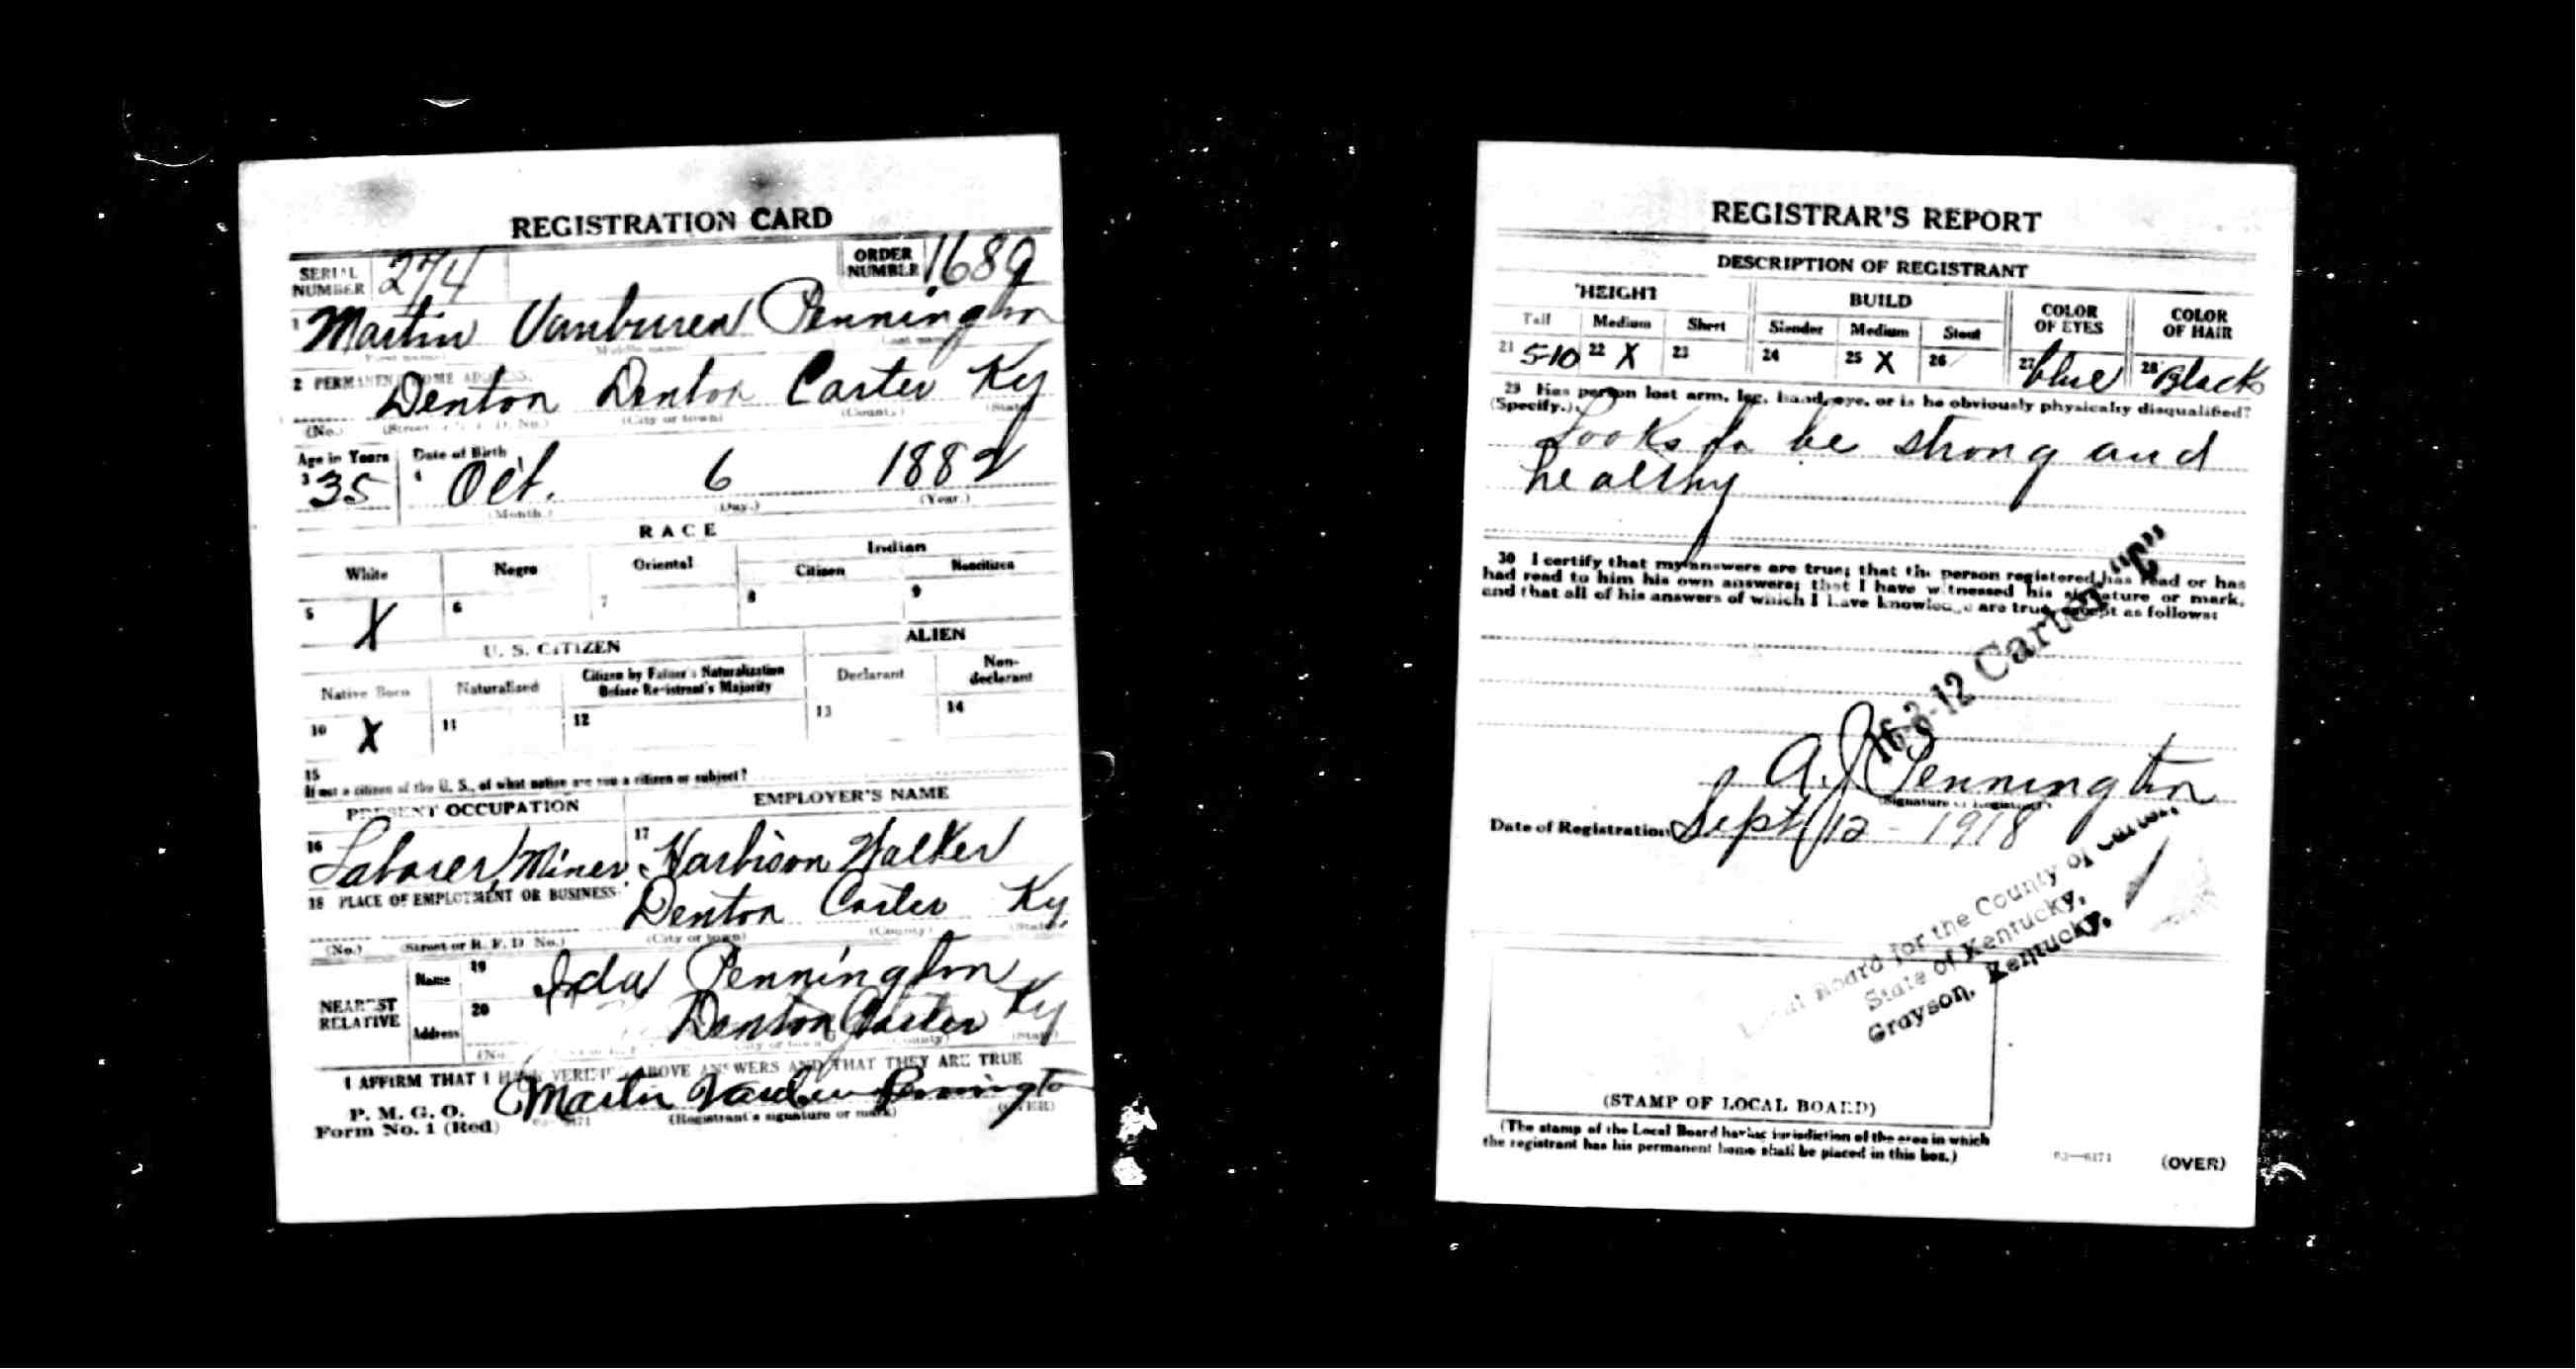 REGISTRATION CARD
SERIAL NUMBER 274 ORDER NUMBER 1689
1 Martin Vanburen Pennington
(First name) (Middle name) (Last name)
2 PERMANENT HOME ADDRESS:
Denton Denton Carter Ky
(No.) (Street or R. F. D. No.) (City or town) (County) (State)
Age in Years Date of Birth
3 35 4 Oct. 6 1882
(Month.) (Day.) (Year.)
RACE
White Negro Oriental Indian
Citizen Noncitizen
5 X 6 7 8 9
U. S. CITIZEN ALIEN
Native Born Naturalized Citizen by Father's Naturalization Before Registrant's Majority Declarant Non-declarant
10 X 11 12 13 14
15
If not a citizen of the U. S., of what nation are you a citizen or subject?
PRESENT OCCUPATION EMPLOYER'S NAME
16 Laborer, Miner 17 Harbison Walker
18 PLACE OF EMPLOYMENT OR BUSINESS:
Denton Carter Ky.
(No.) (Street or R. F. D. No.) (City or town) (County) (State)
NEAREST RELATIVE
Name 19 Ida Pennington
Address 20 Denton Carter Ky
(No.) (City or town) (County) (State)
I AFFIRM THAT I HAVE VERIFIED ABOVE ANSWERS AND THAT THEY ARE TRUE
P. M. G. O.
Form No. 1 (Red) Martin Vanburen Pennington
(Registrant's signature or mark) (OVER)
REGISTRAR'S REPORT
DESCRIPTION OF REGISTRANT
HEIGHT BUILD COLOR OF EYES COLOR OF HAIR
Tall Medium Short Slender Medium Stout
21 5-10 22 X 23 24 25 X 26 27 blue 28 Black
29 Has person lost arm, leg, hand, eye, or is he obviously physically disqualified?
(Specify.)
Looks to be strong and
healthy
30 I certify that my answers are true; that the person registered has read or has
had read to him his own answers; that I have witnessed his signature or mark,
and that all of his answers of which I have knowledge are true, except as follows:
16-3-12 Carter "C"
A. J. Pennington
(Signature of Registrar)
Date of Registration Sept 12 - 1918
Local Board for the County of Carter,
State of Kentucky,
Grayson, Kentucky.
(STAMP OF LOCAL BOARD)
(The stamp of the Local Board having jurisdiction of the area in which
the registrant has his permanent home shall be placed in this box.)
(OVER)